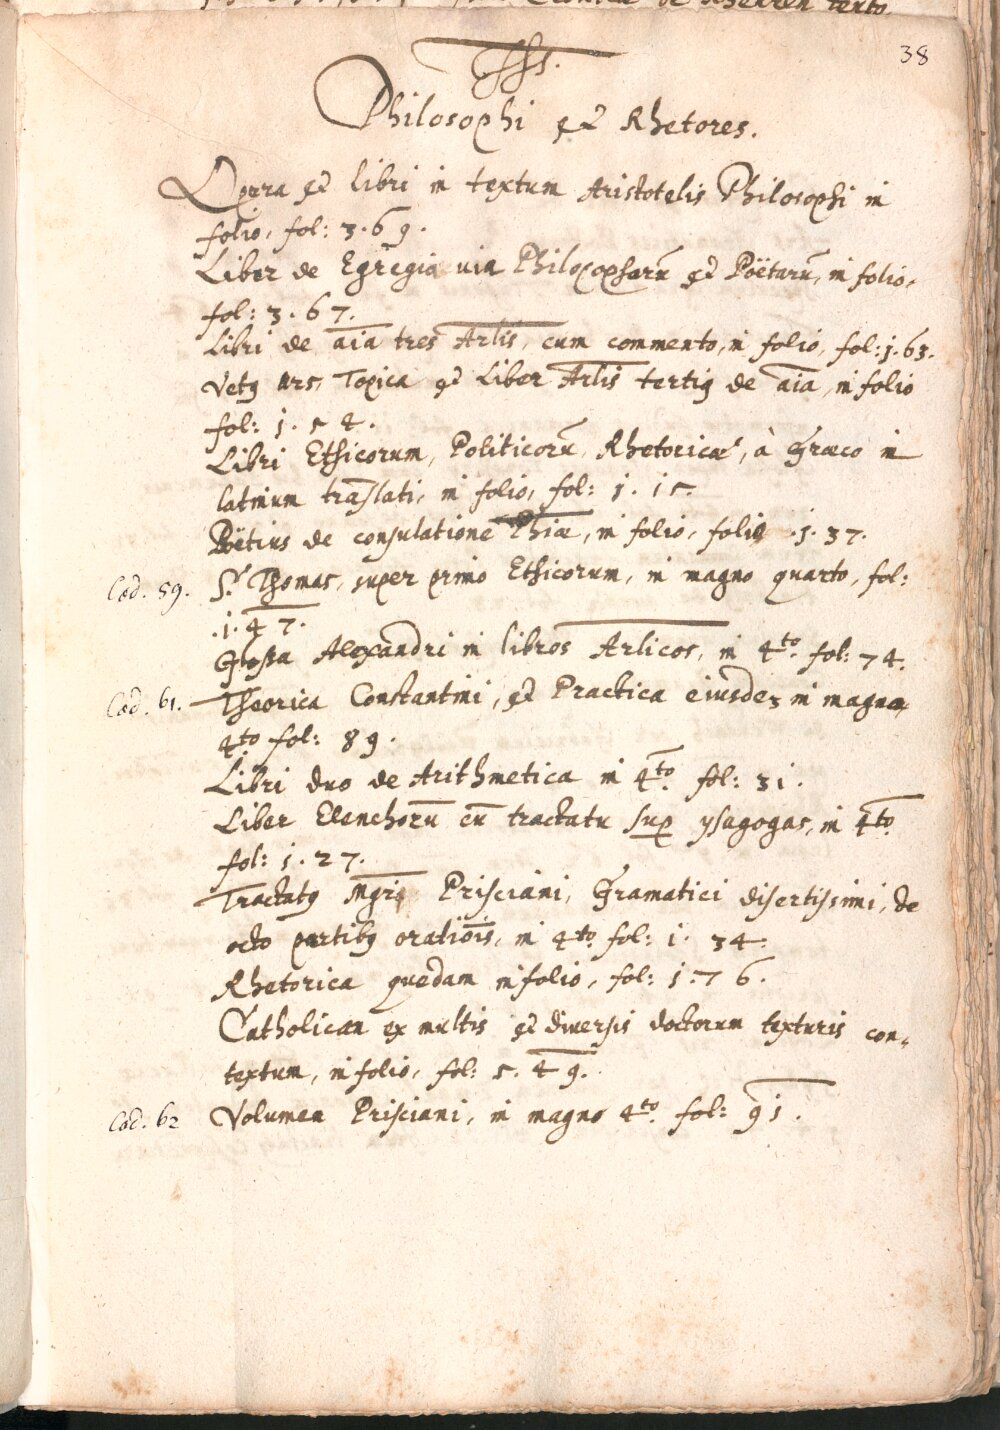 38
Philosophi et Rhetores.
Opera et libri in textum Aristotelis Philosophi in
folio, fol: 3.69.
Liber de Egregia via Philosophorū et Poëtarū, in folio,
fol: 3.67.
Libri de aīa tres Ar̄lis, cum commento, in folio, fol: j.63.
Vetꝰ Ars, Topica et Liber Ar̄lis tertiꝰ de aīa, in folio
fol: j.54.
Libri Ethicorum, Politicorū, Rhetoricæ, à Græco in
latinum trāslati, in folio, fol: j.i5.
Poëtius de consulatione Phiæ, in folio, folio .j.37.
Cod. 59. S. Thomas, super primo Ethicorum, in magno quarto, fol:
.i.47.
Glossa Alexandri in libros Ar̄licos, in 4to. fol: 74.
Cod. 61. Theorica Constantini, et Practica eiusdeʒ in magno,
4to fol: 89.
Libri duo de Arithmetica in 4to. fol: 3i.
Liber Elenchorū cū tractatu suꝑ ysagogas, in 4to.
fol: j.27.
Tractatꝰ Mgri Prisciani, Gramatici disertissimi, de
octo partibꝰ orationis, in 4to. fol: i.34.
Rhetorica quedam in folio, fol: j.76.
Catholican ex multis et diversis doctorum texturis con-
textum, in folio, fol: 5.49.
Cod. 62 Volumen Prisciani, in magno 4to. fol: 9i.